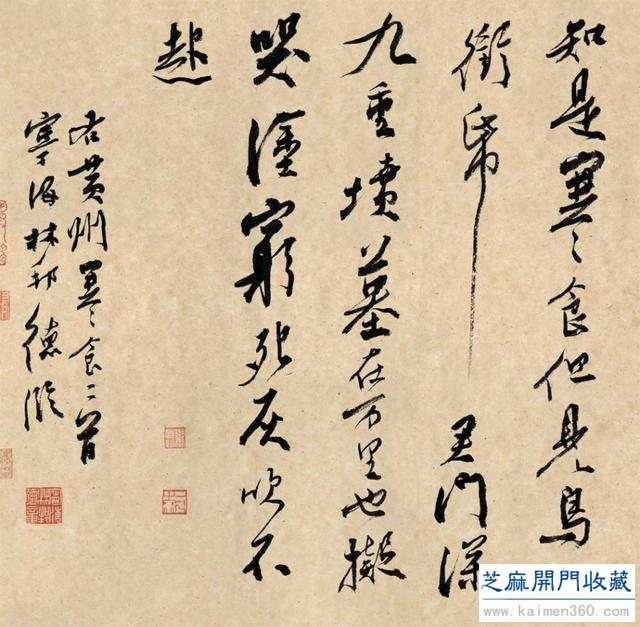 知是寒食但見烏
銜帋君門深
九重墳墓在万里也擬
哭塗窮死灰吹不
起
右黃州寒食二首
寧海林邦德臨
芝麻開門收藏
www.kaimen360.com